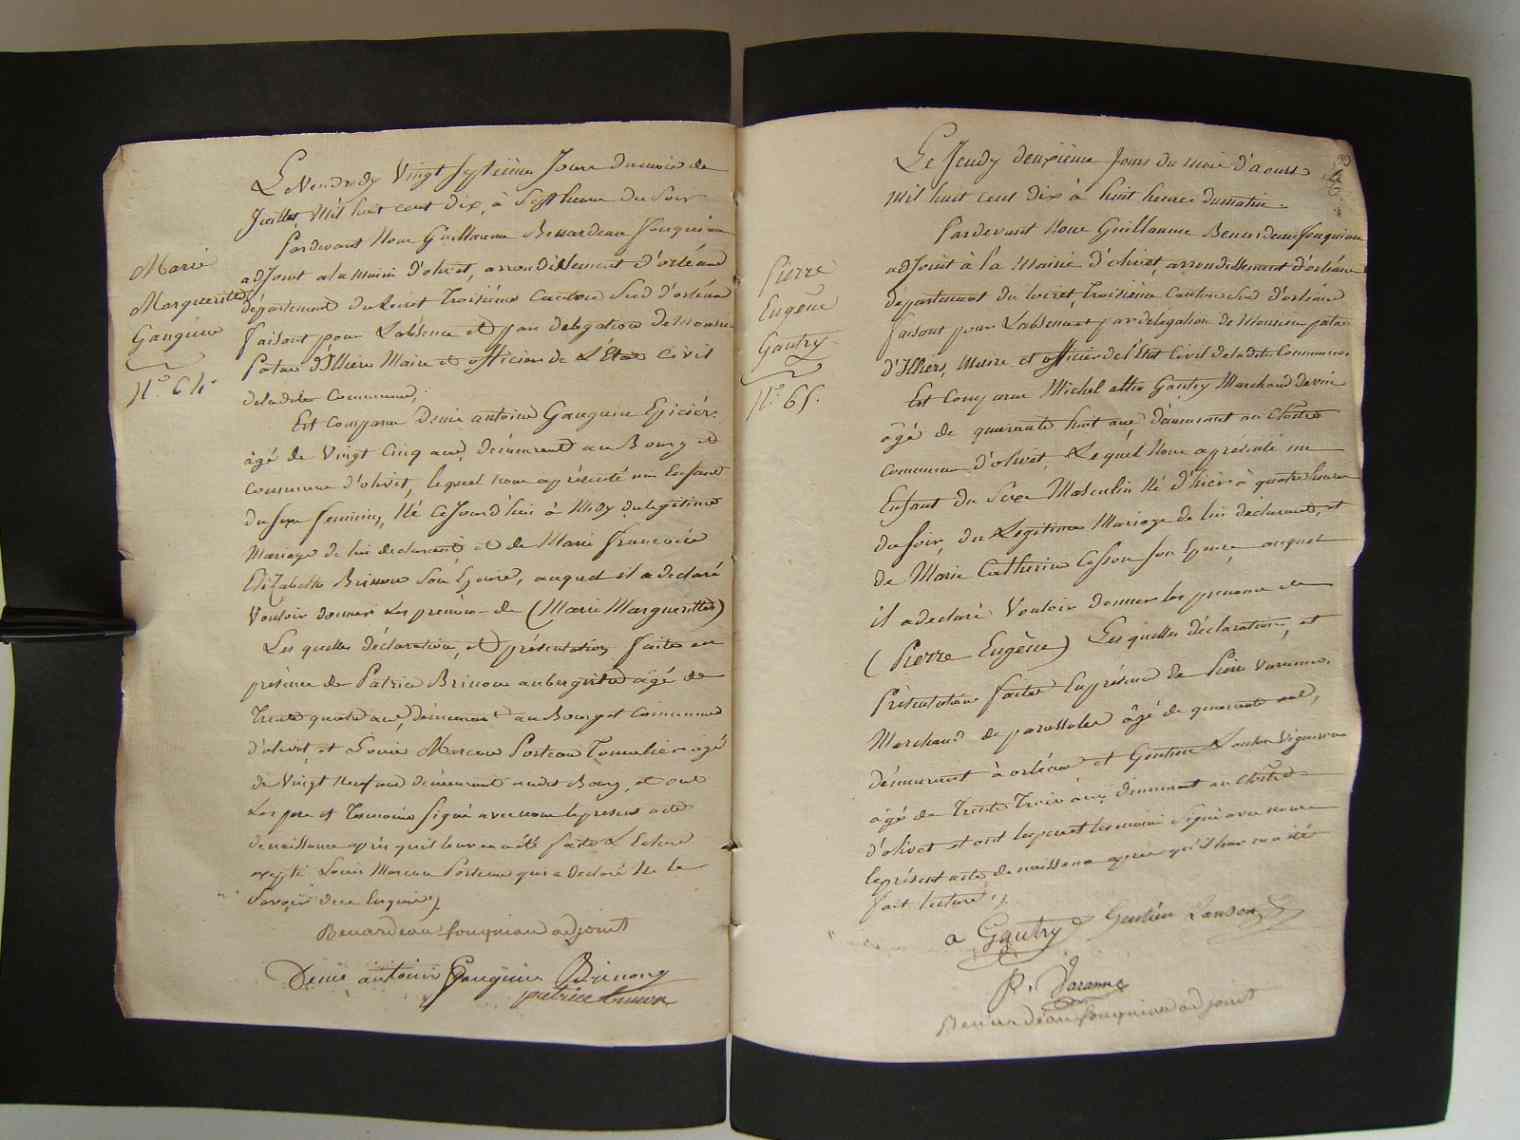 Le Vendredy Vingt Septième Jour du mois de
Juillet Mil huit cent dix, à Sept heure du Soir
Pardevant Nous Guillaume Benardeau fouquiau
adjoint a la mairie d'olivet, arrondissement d'orléans
département du Loiret Troisième Canton Sud d'orléans
faisant pour L'absence et par délégation de Monsieur
Patas d'Illiers Maire et officier de L'Etat Civil
de la dite Commune,
Est comparu Denis antoine Gauguin Epicier
âgé de Vingt Cinq ans, demeurant au Bourg et
commune d'olivet, lequel nous a présenté un Enfant
du sexe féminin, Né Cejourd'hui à Midy du légitime
Mariage de lui déclarant et de Marie françoise
Elizabeth Brinon son Epouse, auquel il a declaré
Vouloir donner les prénoms de (Marie Margueritte)
Les quelles déclaration, et présentation faites en
présence de Patrice Brinon aubergiste âgé de
Trente quatre ans, demeurant au Bourg et Commune
d'olivet, et Louis Moreau Porteau Tonnelier âgé
de Vingt Neuf ans demeurant audit Bourg, et ont
Les pere et Temoins Signé avec nous le present acte
de naissance après qu'il leur en a été faite Lecture
excepté Louis Moreau Porteau qui a declaré Ne le
Savoir de ce Enquis,
Benardeau fouquiau adjoint
Denis antoine Gauguin Brinon
patrice
Marie
Margueritte
Gauguin
N.o 64.
Le Jeudy deuxième Jour du mois d'aoust
Mil huit cent dix à huit heures du matin
Pardevant Nous Guillaume Benardeau fouquiau
adjoint à la Mairie d'olivet, arrondissement d'orléans
département du loiret, Troisième Canton Sud d'orléans
faisant pour L'absence et par délégation de Monsieur patas
d'Illiers, Maire et officier de l'Etat Civil de la dite Commune
Est Comparu Michel Gautry Marchand de vin
âgé de quarante huit ans, demeurant au Cloître
commune d'olivet, Lequel Nous a présenté un
Enfant du Sexe Masculin Né d'hier à quatre heures
du soir, du Légitime Mariage de lui déclarant, et
de Marie Catherine son Epouse, auquel
il a declaré Vouloir donner les prenoms de
(Pierre Eugène) Les quelles déclaration, et
Présentation faites En présence de Pierre Varanne
Marchand de parassoles âgé de quarante ans,
demeurant à orléans et Gentien Landon Vigneron
âgé de Trente Trois ans, demeurant au Cloître
d'olivet et ont les pere et temoins Signé avec nous
le présent acte de naissance après qu'il leur en a été
fait lecture,
a Gautry Gentien Landon
P. Varanne
Benardeau fouquiau adjoint
Pierre
Eugène
Gautry
N.o 65.